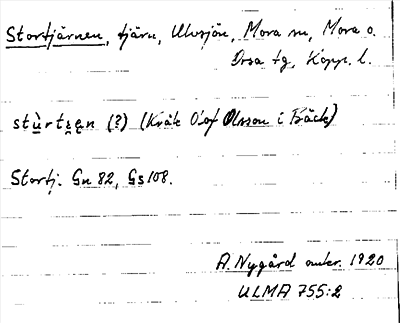 Stortjärnen, tjärn, Ulvsjön, Mora sn, Mora o.
Orsa tg, Kopp. l.
stùrtsen (?) (Kråk Olof Olsson i Bäck)
Stortj. Gn 82, Gs 108.
A. Nygård autor. 1920
ULMA 755:2